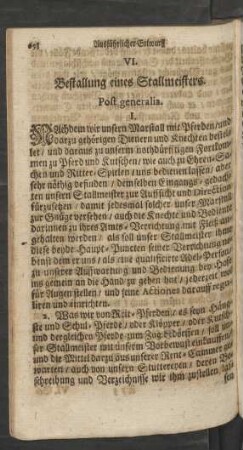 658 Ausführlicher Entwurff
VI.
Bestallung eines Stallmeisters.
Post generalia.
I.
NAchdem wir unsern Marstall mit Pferden / und
darzu gehörigen Dienern und Knechten bestel-
let / und daraus zu unserm nothdürfftigen Fortkom-
men zu Pferd und Kutschen / wie auch zu Ehren-Sa-
chen und Ritter-Spielen / uns bedienen lassen / als
sehr nöthig befinden / demselben Eingangs-gedach-
ten unsern Stallmeister zur Auffsicht und Direction
fürzusetzen / damit jedesmal solcher unser Marstall
zur Gnüge versehen / auch die Knechte und Bediente
darinnen zu ihres Amts-Verrichtung mit Fleiß an-
gehalten werden / als soll unser Stallmeister
diese beyde Haupt-Puncten seiner Verrichtung
als eine qualificirte Adels-Person
zu unserer Auffwartung und Bedienung bey Hofe
ins gemein an die Hand zu gehen hat / jederzeit
für Augen stellen / und seine Actiones darauff
ren und einrichten.
2. Was wir von Reit-Pferden / es seyn Häng-
ste und Schul-Pferde / oder Klöpper / oder Kutsch-
und dergleichen Pferde zum Zug bedörffen / soll un-
ser Stallmeister mit unserm Vorbewust einkauffen /
und die Mittel darzu aus unserer Rent-Cammer
warten / auch von unsern Stuttereyen / deren
schreibung und Verzeichnüß wir ihm zustellen